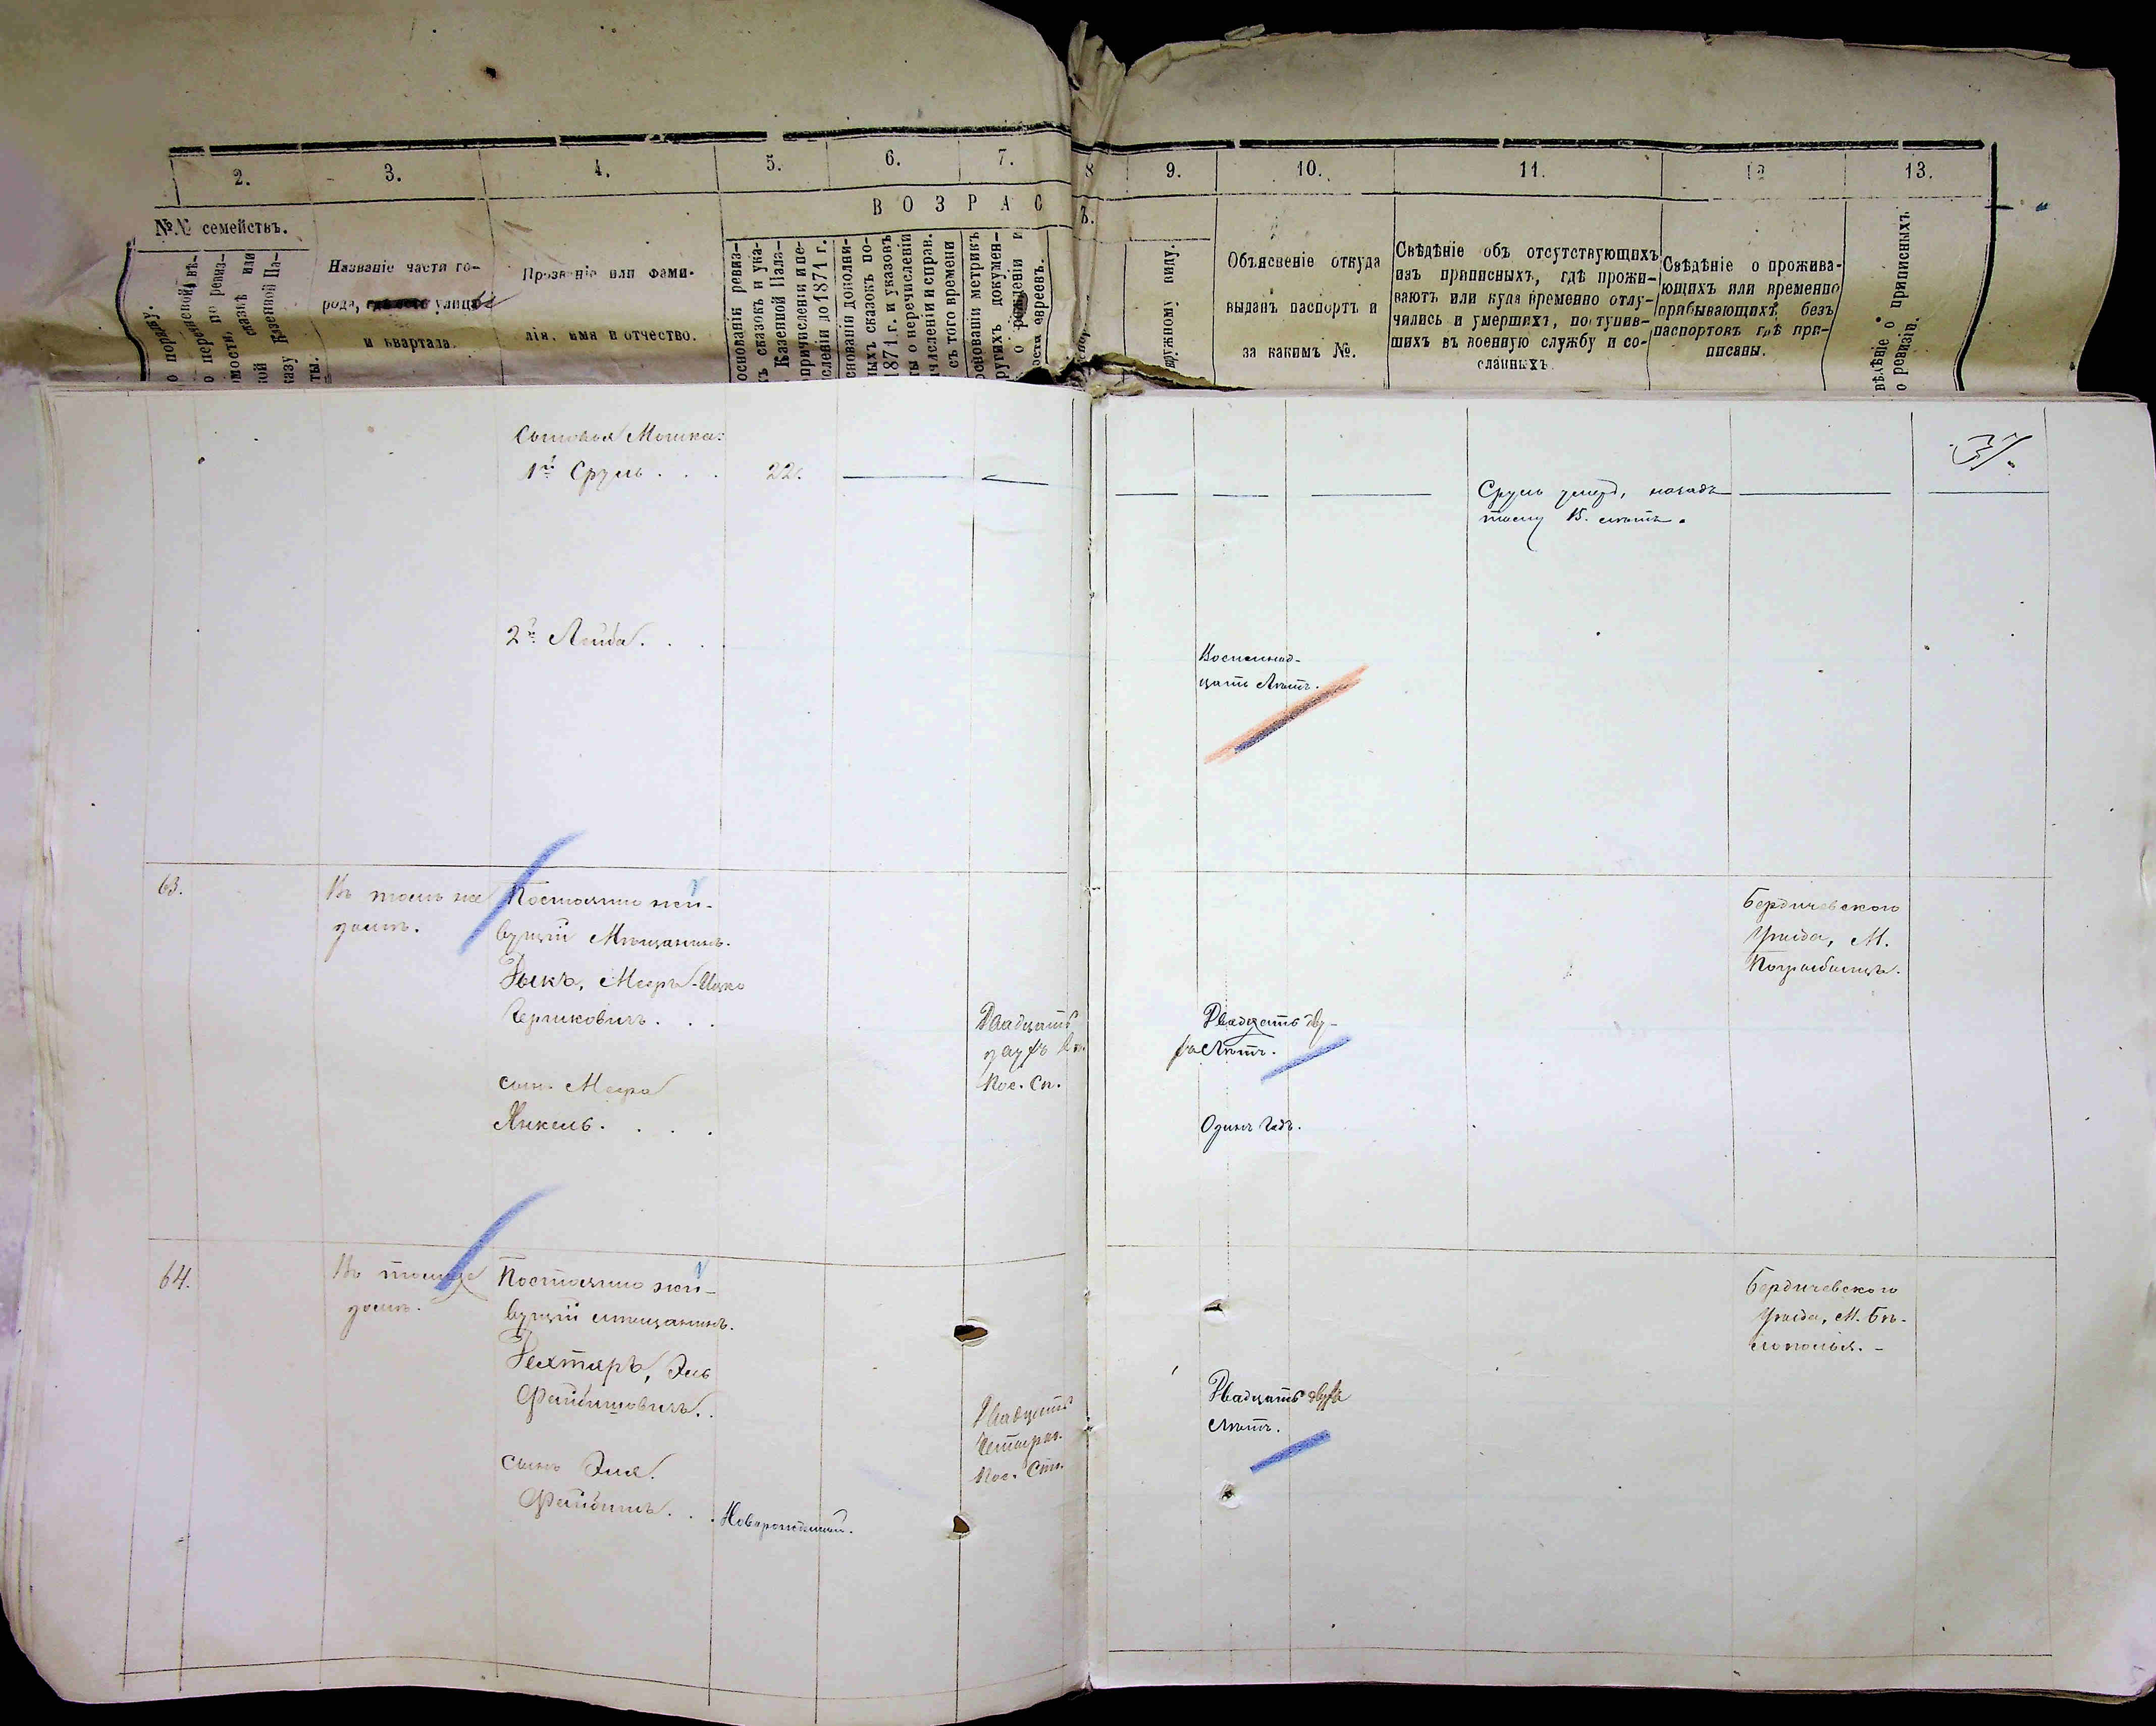 2.
3.
4.
5.
6.
7.
8
9.
10.
11.
12
13.
ВОЗРАС
Ъ.
№№ семействъ.
о порядку.
Названіе части го-
рода, улица
и квартала.
Прозваніе или фами-
лія, имя и отчество.
основаніи ревиз-
хъ сказокъ и ука-
Казенной Пала-
причисленіи и пе-
сленіи до 1871 г.
сновани дополни-
ныхъ сказокъ по-
1871 г. и указовъ
ты о перечисленіи
ичисленіи и справ.
съ того времени
основаніи метрикъ
ругихъ докумен-
о рожденіи и
евреевъ.
аружному виду.
Объясненіе откуда
выданъ паспортъ и
за какимъ №.
Свѣдѣніе объ отсутствующихъ
изъ приписныхъ, гдѣ прожи-
ваютъ или куда временно отлу-
чились и умершихъ, поступив-
шихъ въ военную службу и со-
сланныхъ.
Свѣдѣніе о прожива-
ющихъ или временно
прибывающихъ безъ
паспортовъ гдѣ при-
писаны.
вѣдѣніе о приписныхъ
о ревизіи.
Сыновья Мошка:
1й Сруль . . .
22.
Сруль умеръ, назадъ
тому 15. лѣтъ.
2й Лейба. . .
Восемнад-
цать Лѣтъ.
63.
Въ томъ же
домѣ.
Постоянно жи-
вущій Мѣщанинъ.
Зыкъ, Мееръ-Ицко
Берковичъ. . .
Двадцать
Пос. Сп.
Двадцать два
Лѣтъ.
Бердичевского
Уѣзда, М.
Погребищъ.
сынъ Меера
Янкель. . . .
Одинъ Годъ.
64.
Въ томъ же
домѣ.
Постоянно жи-
вущій мѣщанинъ.
Зехтеръ, Эль
Файбишовичъ. .
Двадцать
Четыре.
Пос. Сп.
Двадцать два
Лѣтъ.
Бердичевского
Уѣзда, М. Бѣ-
лополья. -
сынъ Эля.
Файбишъ. . .
Новорожденный.